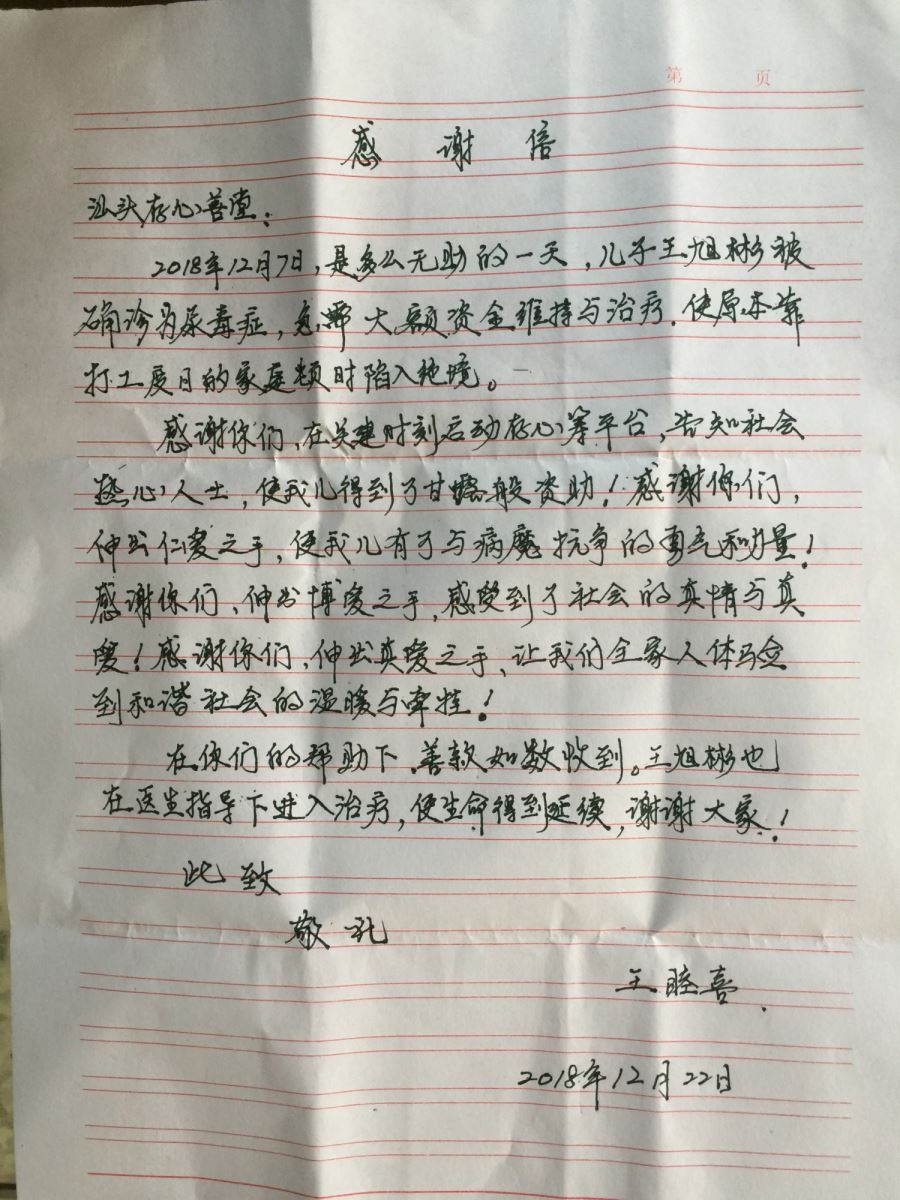 第 页
感谢信
汕头存心善堂：
2018年12月7日，是多么无助的一天，儿子王旭彬被
确诊为尿毒症，急需大额资金维持与治疗．使原本靠
打工度日的家庭顿时陷入绝境。
感谢你们，在关键时刻启动存心筹平台，告知社会
热心人士，使我儿得到了甘露般资助！感谢你们，
伸出仁爱之手，使我儿有了与病魔抗争的勇气和力量！
感谢你们、伸出博爱之手，感受到了社会的真情与真
爱！感谢你们，伸出真爱之手、让我们全家人体验
到和谐社会的温暖与牵挂！
在你们的帮助下．善款如数收到。王旭彬也
在医生指导下进入治疗，使生命得到延续，谢谢大家！
此致
敬礼
王睦喜．
2018年12月22日